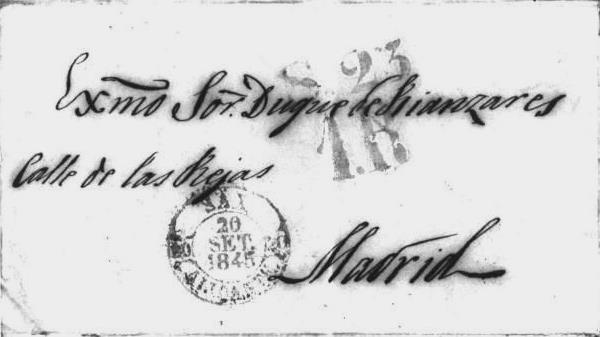 Exmo Sor. Duque de Rianzares
Calle de las Rejas
Madrid
S. 23
1R
SAN
20
SET.
1845